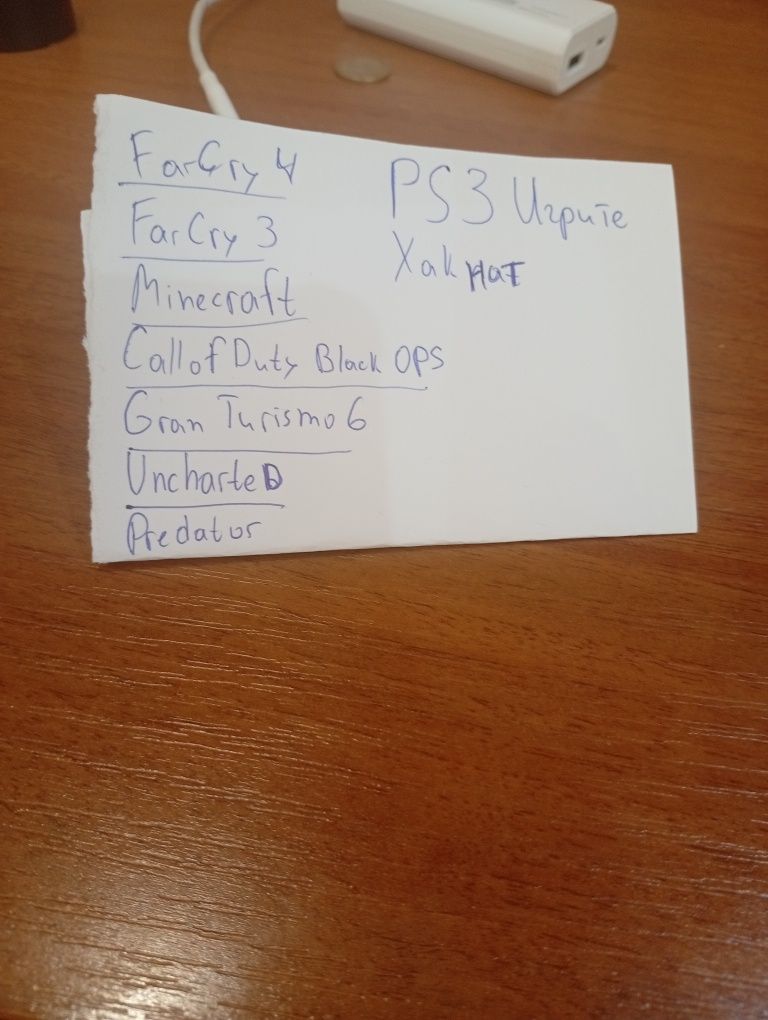 FarCry 4
FarCry 3
Minecraft
Call of Duty Black OPS
Gran Turismo 6
UncharteD
Predator
PS3 Игрите
Хакнат